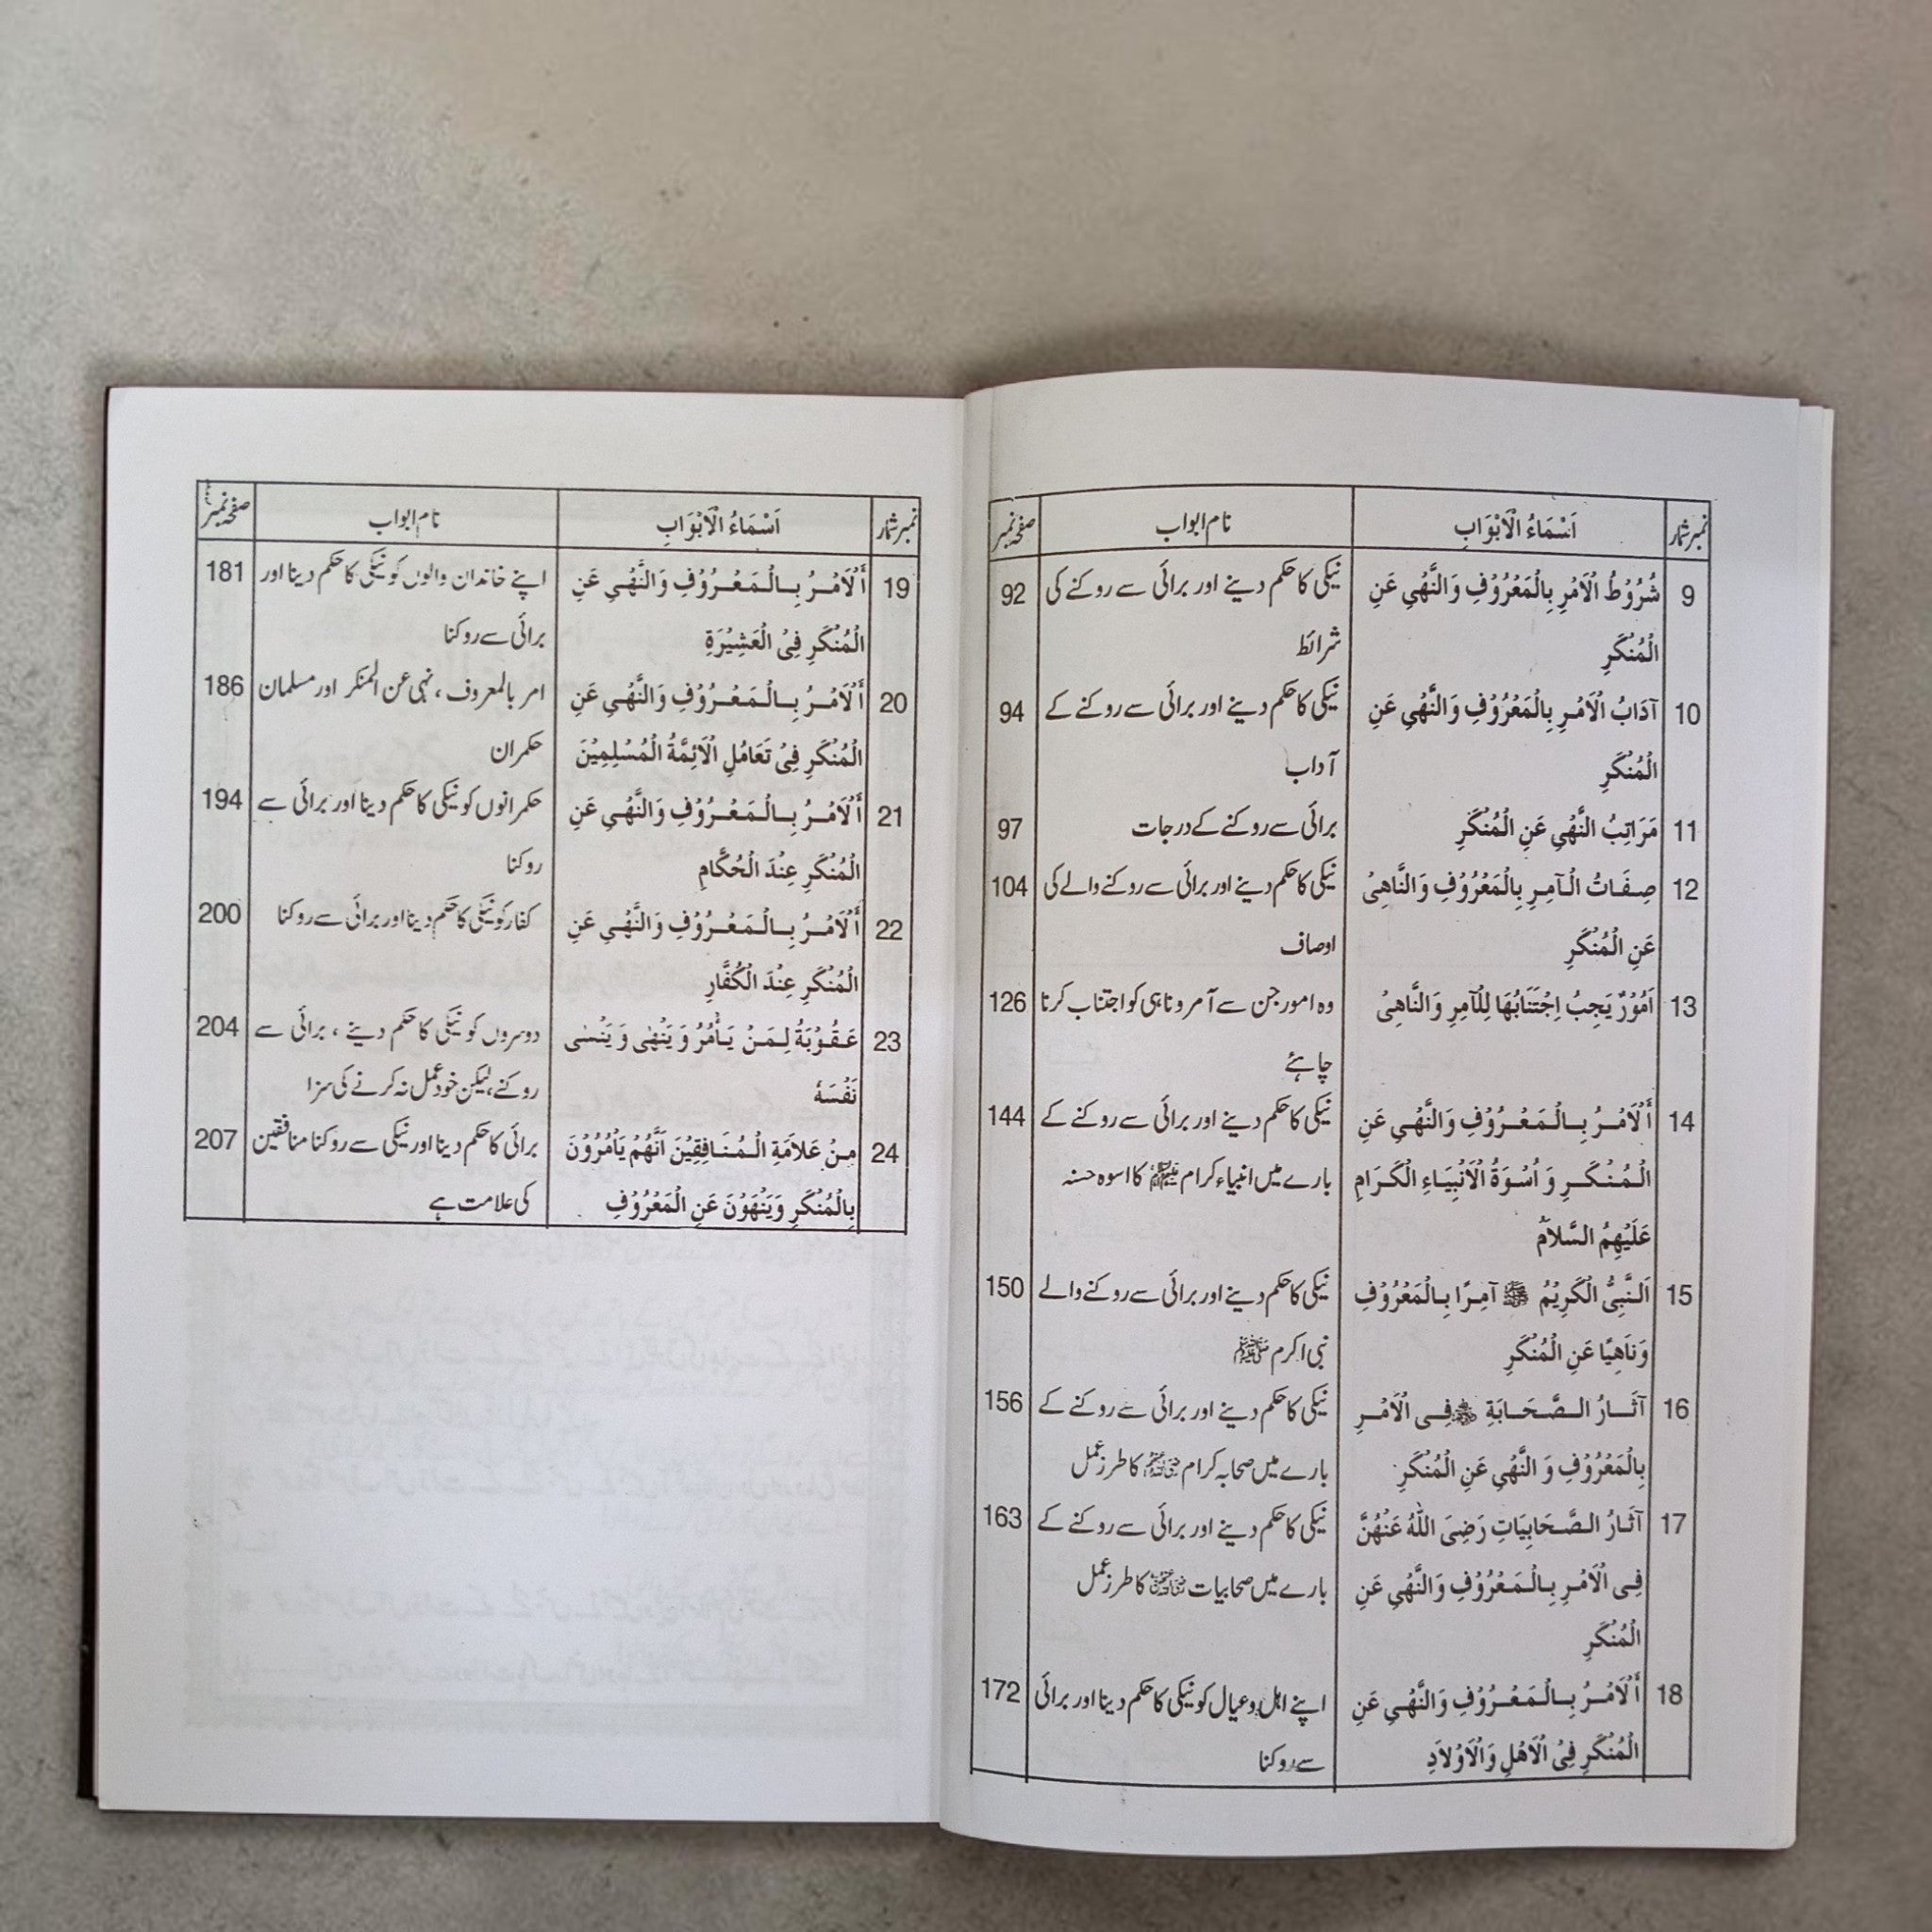 نمبر شمار اَسْمَاءُ الْاَبْوَابِ نام ابواب صفحہ نمبر
9 شُرُوْطُ الْاَمْرِ بِالْمَعْرُوْفِ وَالنَّهْيِ عَنِ نیکی کا حکم دینے اور برائی سے روکنے کی 92
الْمُنْكَرِ شرائط
10 آدَابُ الْاَمْرِ بِالْمَعْرُوْفِ وَالنَّهْيِ عَنِ نیکی کا حکم دینے اور برائی سے روکنے کے 94
الْمُنْكَرِ آداب
11 مَرَاتِبُ النَّهْيِ عَنِ الْمُنْكَرِ برائی سے روکنے کے درجات 97
12 صِفَاتُ الْآمِرِ بِالْمَعْرُوْفِ وَالنَّاهِيْ نیکی کا حکم دینے اور برائی سے روکنے والے کی 104
عَنِ الْمُنْكَرِ اوصاف
13 اَمُوْرٌ يَجِبُ اِجْتَنَابُهَا لِلْآمِرِ وَالنَّاهِيْ وہ امور جن سے آمر و ناہی کو اجتناب کرنا 126
چاہئے
14 أَلْاَمْرُ بِالْمَعْرُوْفِ وَالنَّهْيِ عَنِ نیکی کا حکم دینے اور برائی سے روکنے کے 144
الْمُنْكَرِ وَ اُسْوَةُ الْاَنْبِيَاءِ الْكَرَامِ بارے میں انبیاء کرام علیہم السلام کا اسوہ حسنہ
عَلَيْهِمُ السَّلَامُ
15 اَلنَّبِيُّ الْكَرِيْمُ ﷺ آمِرًا بِالْمَعْرُوْفِ نیکی کا حکم دینے اور برائی سے روکنے والے 150
وَنَاهِيًا عَنِ الْمُنْكَرِ نبی اکرم ﷺ
16 آثَارُ الصَّحَابَةِ ﷢ فِى الْاَمْرِ نیکی کا حکم دینے اور برائی سے روکنے کے 156
بِالْمَعْرُوْفِ وَ النَّهْيِ عَنِ الْمُنْكَرِ بارے میں صحابہ کرام ﷢ کا طرز عمل
17 آثَارُ الصَّحَابِيَاتِ رَضِىَ اللّٰهُ عَنْهُنَّ نیکی کا حکم دینے اور برائی سے روکنے کے 163
فِى الْاَمْرِ بِالْمَعْرُوْفِ وَالنَّهْيِ عَنِ بارے میں صحابیات کا طرز عمل
الْمُنْكَرِ
18 أَلْاَمْرُ بِالْمَعْرُوْفِ وَالنَّهْيِ عَنِ اپنے اہل و عیال کو نیکی کا حکم دینا اور برائی 172
الْمُنْكَرِ فِيْ الْاَهْلِ وَالْاَوْلَادِ سے روکنا
نمبر شمار اَسْمَاءُ الْاَبْوَابِ نام ابواب صفحہ نمبر
19 أَلْاَمْرُ بِالْمَعْرُوْفِ وَالنَّهْيِ عَنِ اپنے خاندان والوں کو نیکی کا حکم دینا اور 181
الْمُنْكَرِ فِيْ الْعَشِيْرَةِ برائی سے روکنا
20 أَلْاَمْرُ بِالْمَعْرُوْفِ وَالنَّهْيِ عَنِ امر بالمعروف ، نہی عن المنکر اور مسلمان 186
الْمُنْكَرِ فِيْ تَعَامُلِ الْاَئِمَّةُ الْمُسْلِمِيْنَ حکمران
21 أَلْاَمْرُ بِالْمَعْرُوْفِ وَالنَّهْيِ عَنِ حکمرانوں کو نیکی کا حکم دینا اور برائی سے 194
الْمُنْكَرِ عِنْدَ الْحُكَّامِ روکنا
22 أَلْاَمْرُ بِالْمَعْرُوْفِ وَالنَّهْيِ عَنِ کفار کو نیکی کا حکم دینا اور برائی سے روکنا 200
الْمُنْكَرِ عِنْدَ الْكُفَّارِ
23 عَقُوْبَةُ لِمَنْ يَأْمُرُ وَ يَنْهٰى وَ يَنْسٰى دوسروں کو نیکی کا حکم دینے ، برائی سے 204
نَفْسَهٗ روکنے ، لیکن خود عمل نہ کرنے کی سزا
24 مِنْ عَلَامَةِ الْمُنَافِقِيْنَ اَنَّهُمْ يَاْمُرُوْنَ برائی کا حکم دینا اور نیکی سے روکنا منافقین 207
بِالْمُنْكَرِ وَيَنْهَوْنَ عَنِ الْمَعْرُوْفِ کی علامت ہے